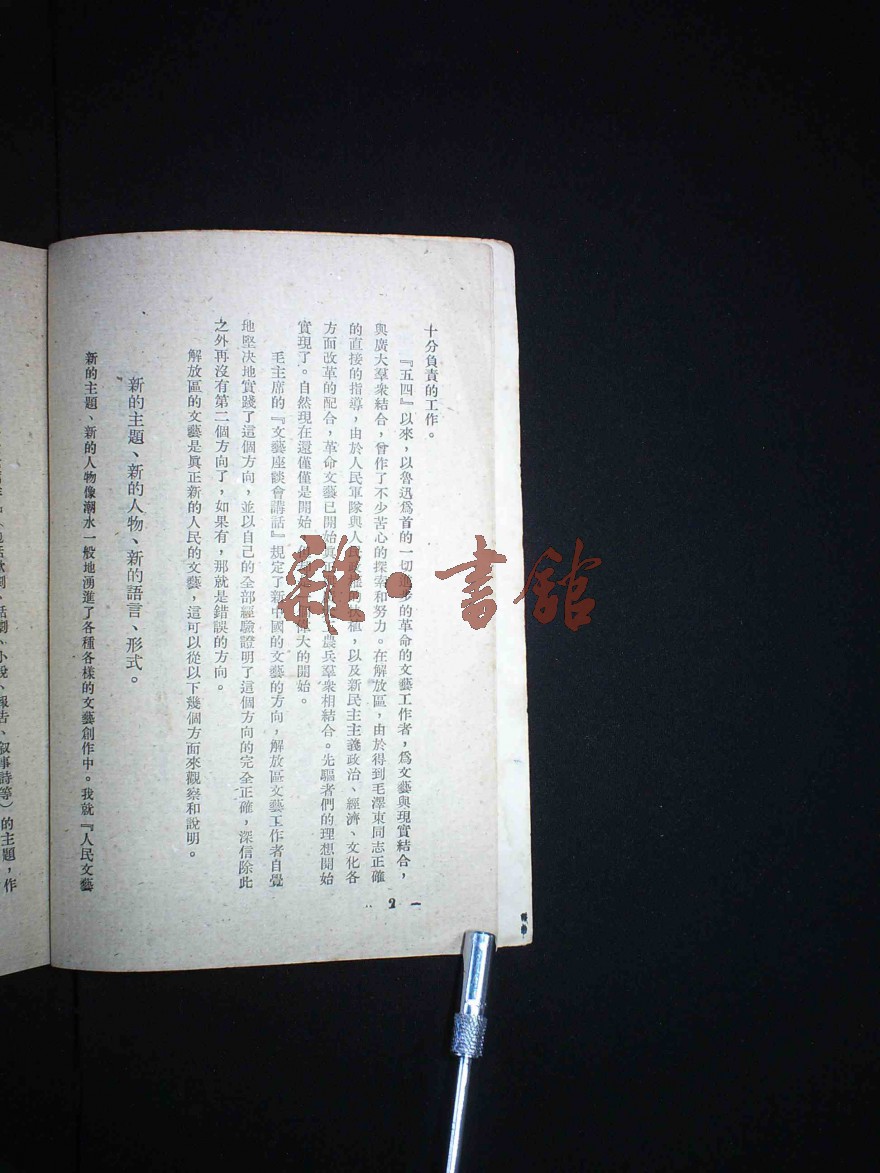 十分負責的工作。
『五四』以來，以魯迅爲首的一切進步的革命的文藝工作者，爲文藝與現實結合，
與廣大羣衆結合，曾作了不少苦心的探索和努力。在解放區，由於得到毛澤東同志正確
的直接的指導，由於人民軍隊與人民政權的扶植，以及新民主主義政治、經濟、文化各
方面改革的配合，革命文藝已開始眞正農兵羣衆相結合。先驅者們的理想開始
實現了。自然現在還僅僅是開始，偉大的開始。
毛主席的『文藝座談會講話』規定了新中國的文藝的方向，解放區文藝工作者自覺
地堅決地實踐了這個方向，並以自己的全部經驗證明了這個方向的完全正確，深信除此
之外再沒有第二個方向了，如果有，那就是錯誤的方向。
解放區的文藝是眞正新的人民的文藝，這可以從以下幾個方面來觀察和說明。
新的主題、新的人物、新的語言、形式。
新的主題、新的人物像潮水一般地湧進了各種各樣的文藝創作中。我就『人民文藝
話劇、小說、報告、叙事詩等）的主題，作
2
雜·書館